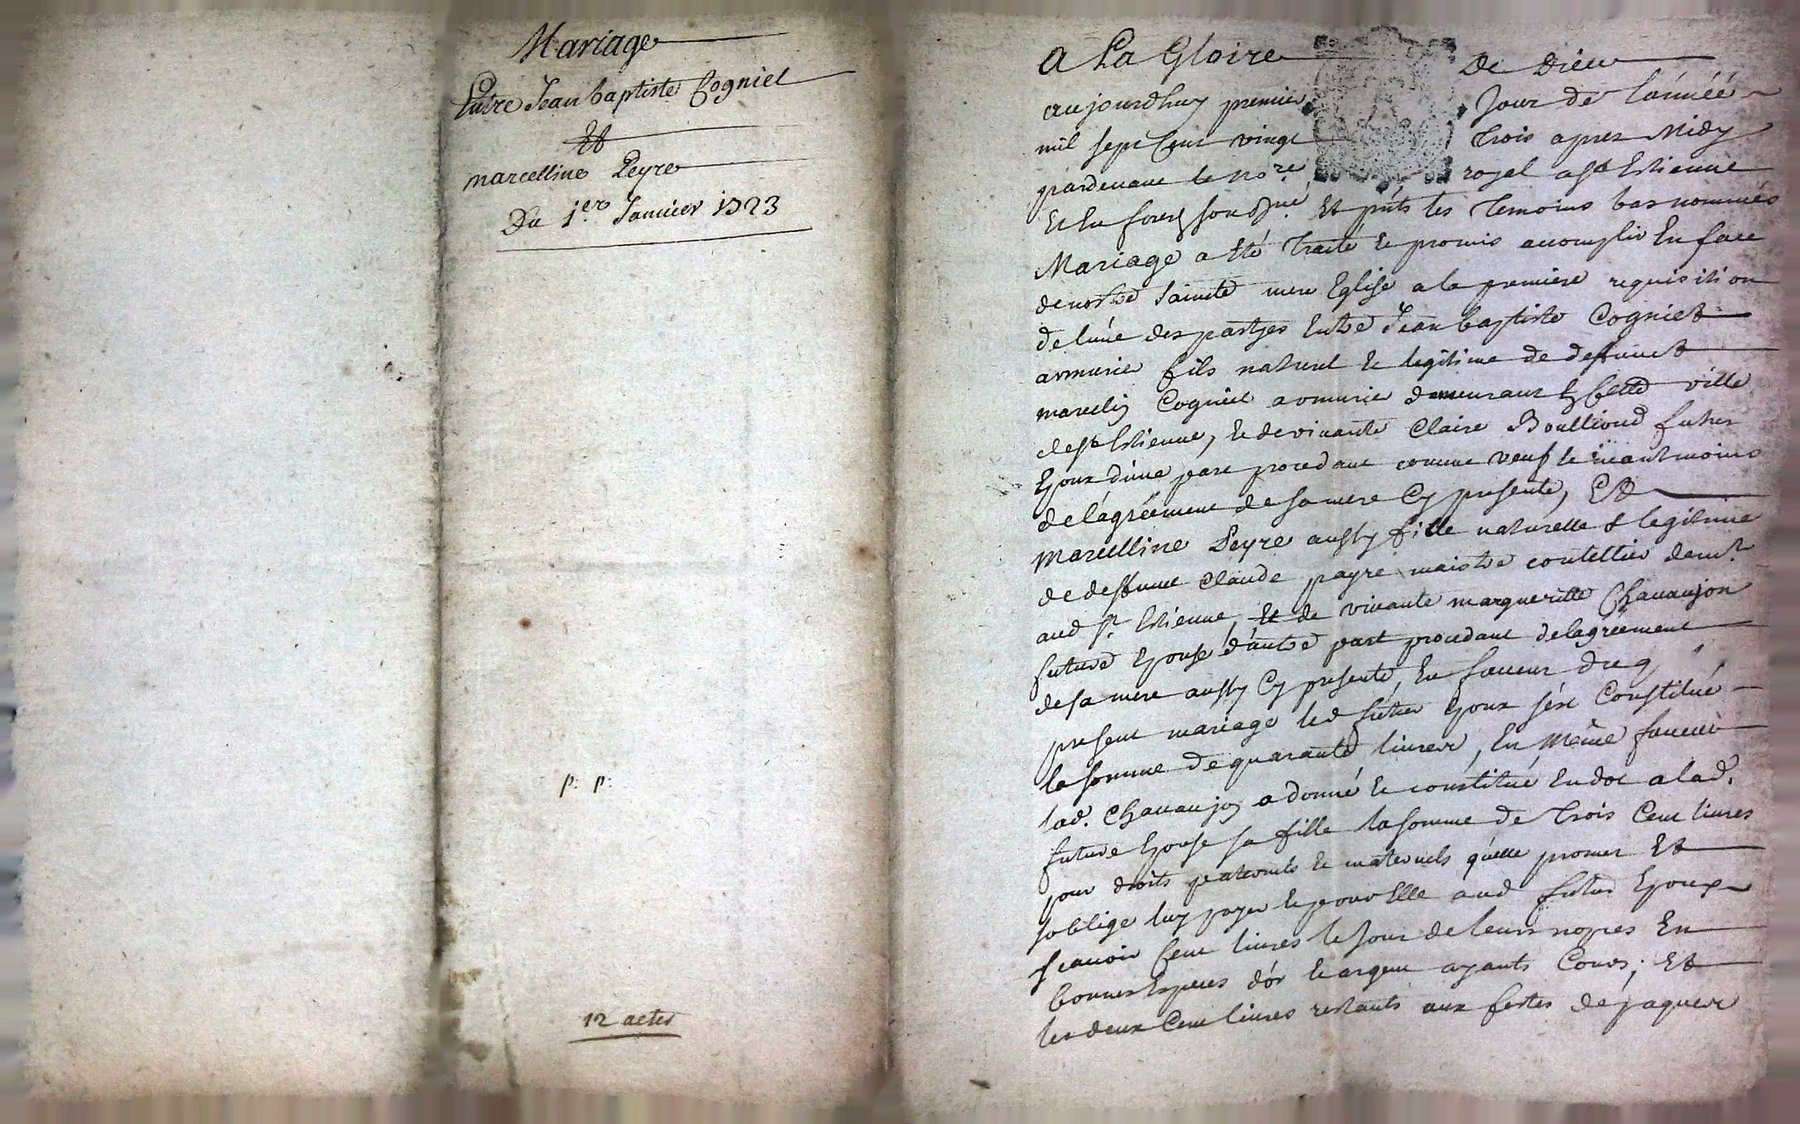 Mariage
Entre Jean baptiste Cogniet
Et
marcelline Peyre
Du 1.er Janvier 1723
p: p:
12 actes
A La Gloire De Dieu
aujourdhuy premier Jour de l'année
mil sept Cent vingt Trois apres Midy
pardevant le no.re royal a st Estienne
Et En forest sousigné Et pñts les Temoins bas nommés
Mariage a Eté Traité Et promis accomplir En face
de nostre Sainte mere Eglise a la premiere requisition
de lune des partyes Entre Jean baptiste Cogniet
armurie fils naturel Et legitime de deffunct
marcelin Cogniet armurie demeurant En Cette ville
de st Estienne, Et de vivante Claire Boullioud futur
Epoux d'une part procedant comme veuf Et neantmoins
de lagréement de sa mere Cy presente, Et
Marcelline Peyre aussy fille naturelle & legitime
de deffunct Claude payre maistre coutellier demt.
aud st Estienne, Et de vivante margueritte Chavanjon
future Epouse d'autre part procedant de lagréement
de sa mere aussy Cy presente, En faveur du
present mariage led futur Epoux s'est Constitué
la somme de quarante livres, En Même faveur
lad. Chavanjon a donné Et constitué En dot a lad.
future Epouse sa fille la somme de Trois Cent livres
pour droits paternels Et maternels quelle promet Et
soblige luy payer Et pour Elle aud futur Epoux
scavoir Cent livres le Jour de leurs nopces En
bonnes Especes d'or Et argent ayants Cours; Et
les deux Cent livres restants aux festes de paques